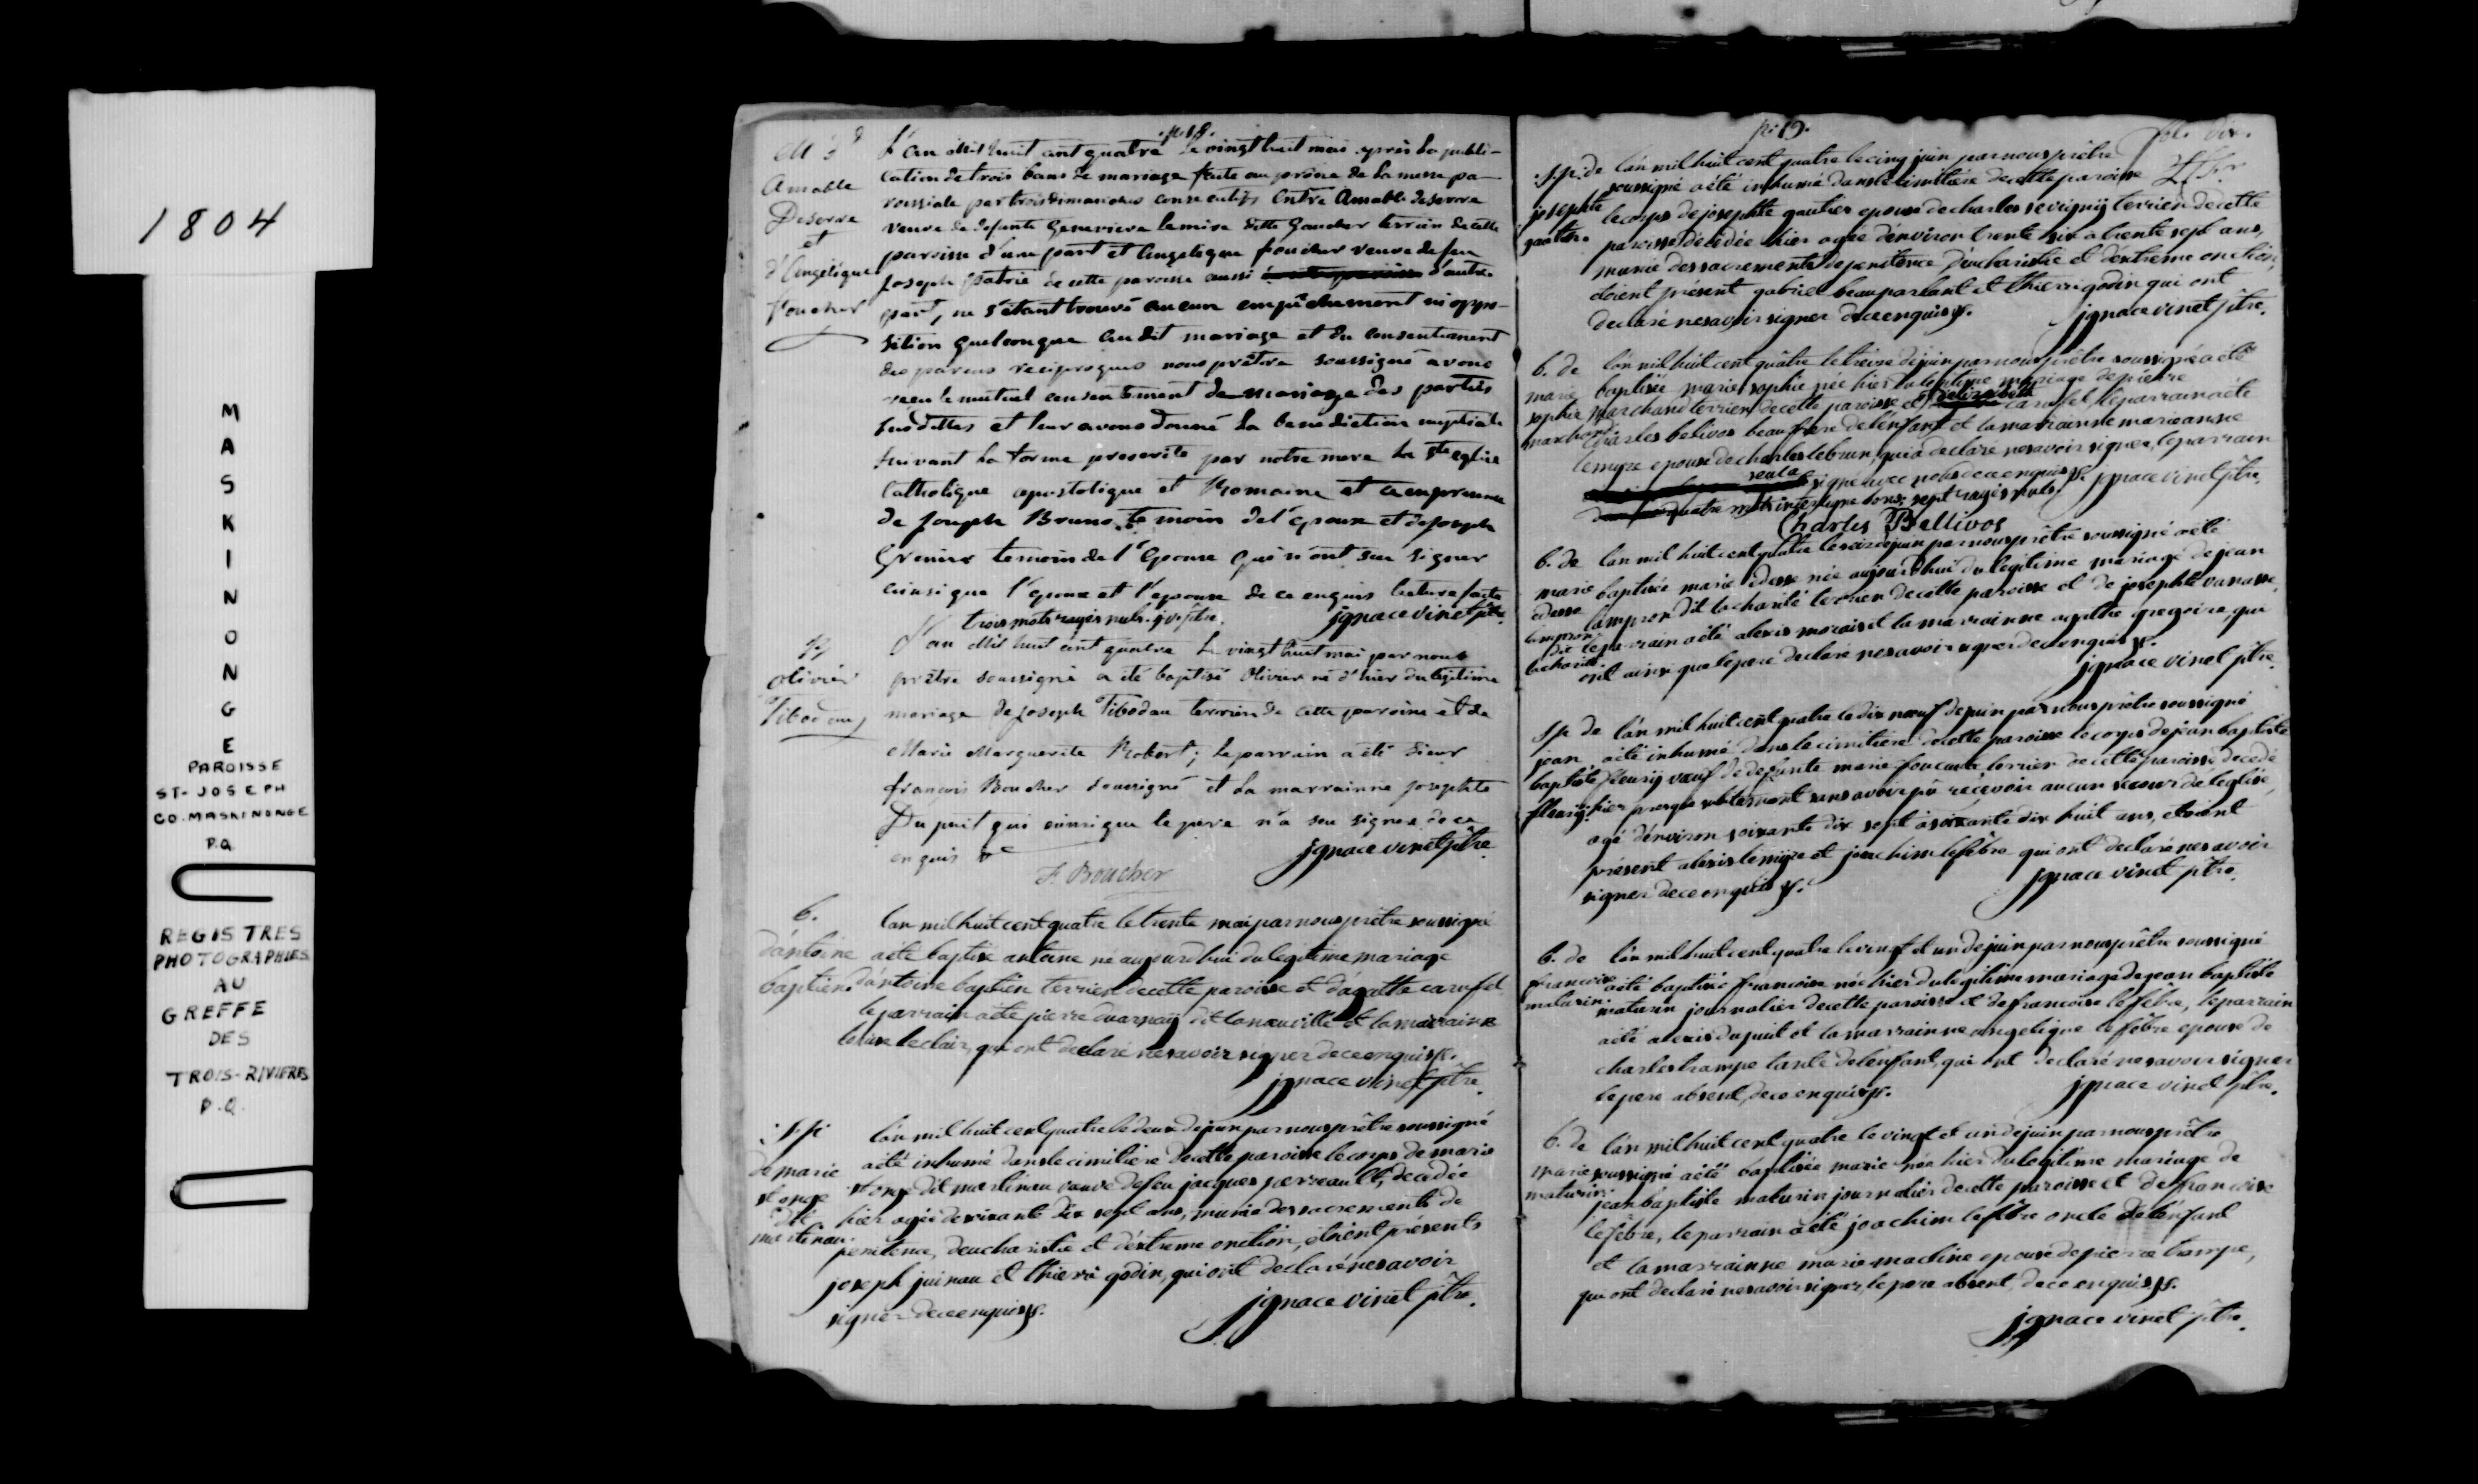 1804
MASKINONGE
PAROISSE
ST-JOSEPH
CO. MASKINONGE
P.Q.
REGISTRES
PHOTOGRAPHIES
AU
GREFFE
DES
TROIS-RIVIERES
P.Q.
p. 18.
Amable
Deserre
et
d'Angelique
foucher
L'an Mil huit cent quatre le vingt huit mai après la publi-
cation de trois bans de mariage faite au prône de la messe pa-
roissiale par trois dimanches consecutifs Entre Amable deserre
veuve de defunte Genevieve lemire ditte Gaucher terrien de cette
paroisse d'une part et Angelique foucher veuve de feu
Joseph patrie de cette paroisse aussi d'autre
part, ne s'étant trouvé aucun empêchement ni oppo-
sition quelconque audit mariage et du consentement
des parens reciproques nous prêtre soussigné avons
reçu le mutuel consentement de mariage des parties
susdittes et leur avons donné la benediction nuptiale
suivant la forme prescrite par notre mere la Ste eglise
Catholique apostolique et Romaine et ce en presence
de Joseph Bruno temoin de l'époux et de Joseph
Grenier temoin de l'épouse qui n'ont seu signer
ainsi que l'epoux et l'epouse de ce enquis lecture faite
trois mots rayés nuls. ignace vinet ptre.
B
olivier
Tibodau
L'an Mil huit cent quatre le vingt huit mai par nous
prêtre soussigné a été baptisé Olivier né d'hier du legitime
mariage de Joseph Tibodau terrien de cette paroisse et de
Marie Marguerite Robert; le parrain a été Sieur
françois Boucher soussigné et la marrainne Josephte
Dupuit qui ainsi que le pere n'a seu signer de ce
enquis &c ignace vinet ptre
F. Boucher
b.
d'antoine
baptien.
lan mil huit cent quatre le trente mai par nous prêtre soussigné
a été baptisé antoine né aujourdhui du legitime mariage
d'antoine baptien terrien de cette paroisse et d'agatte carufel
le parrain a été pierre duarnaÿ dit laneuville et la marrainne
louise leclair, qui ont declaré ne savoir signer de ce enquis &.
ignace vinet ptre.
S.p.
de marie
st onge
dit
martinau.
l'an mil huit cent quatre le deux de juin par nous prêtre soussigné
a été inhumé dans le cimitiere de cette paroisse le corps de marie
st onge dit martinau veuve de feu jacques perreault, decedée
hier agée de soixante dix sept ans, munie des sacrements de
penitence, deucharistie et d'extreme onction, etoient présents
joseph juinau et thierri godin, qui ont declaré ne savoir
signer de ce enquis &.
ignace vinet ptre.
p. 19. fol. dix.
S.p. de
josephte
gautier.
l'an mil huit cent quatre le cinq juin par nous prêtre
soussigné a été inhumé dans le cimitiere de cette paroisse
le corps de josephte gautier epouse de charles sevrignÿ terrien de cette
paroisse décédée hier agée d'environ trente six a trente sept ans,
munie des sacrements de penitence d'eucharistie et d'extreme onction,
etoient présent gabriel beauparlant et thierri godin qui ont
declaré ne savoir signer de ce enquis &. ignace vinet ptre.
b. de
marie
sophie
marchand.
l'an mil huit cent quatre le treize de juin par nous prêtre soussigné a été
baptisée marie sophie née hier du legitime mariage de pierre
marchand terrien de cette paroisse et d'elizabeth carufel, le parrain a été
charles belivos beau frere de l'enfant et la marrainne marieanne
lemyre epouse de charles lebrun, qui a declaré ne savoir signer, le parrain
seul a signé avec nous de ce enquis &. ignace vinet ptre.
quatre mots interligne bons, sept rayés nuls.
Charles Bellivos
b. de
marie
edesse
lampron
dit
lacharité.
l'an mil huit cent quatre le seize de juin par nous prêtre soussigné a été
baptisée marie edesse née aujourd'hui du legitime mariage de jean
lampron dit lacharité terrien de cette paroisse et de josephte vanasse,
le parrain a été alexis morais et la marrainne agatthe gregoire, qui
ont ainsi que le pere declaré ne savoir signer de ce enquis &.
ignace vinet ptre.
S.p. de
jean
baptiste
fleurÿ.
l'an mil huit cent quatre le dix neuf de juin par nous prêtre soussigné
a été inhumé dans le cimitiere de cette paroisse le corps de jean baptiste
fleurÿ veuf de defunte marie foucault terrien de cette paroisse decedé
hier presque subitement sans avoir pû recevoir aucun secour de leglise,
agé d'environ soixante dix sept a soixante dix huit ans, etoient
présent alexis lemyre et joachim lefebre qui ont declaré ne savoir
signer de ce enquis &. ignace vinet ptre.
b. de
francoise
maturin.
l'an mil huit cent quatre le vingt et un de juin par nous prêtre soussigné
a été baptisée francoise née hier du legitime mariage de jean baptiste
maturin journalier de cette paroisse et de francoise lefebre, le parrain
a été alexis dupuit et la marrainne angelique lefebre epouse de
charles trampe tante de l'enfant, qui ont declaré ne savoir signer
le pere absent, de ce enquis &. ignace vinet ptre.
b. de
marie
maturin.
l'an mil huit cent quatre le vingt et un de juin par nous prêtre
soussigné a été baptisée marie née hier du legitime mariage de
jean baptiste maturin journalier de cette paroisse et de francoise
lefebre, le parrain a été joachim lefebre oncle de l'enfant
et la marrainne marie macline epouse de pierre trampe,
qui ont declaré ne savoir signer, le pere absent, de ce enquis &.
ignace vinet ptre.